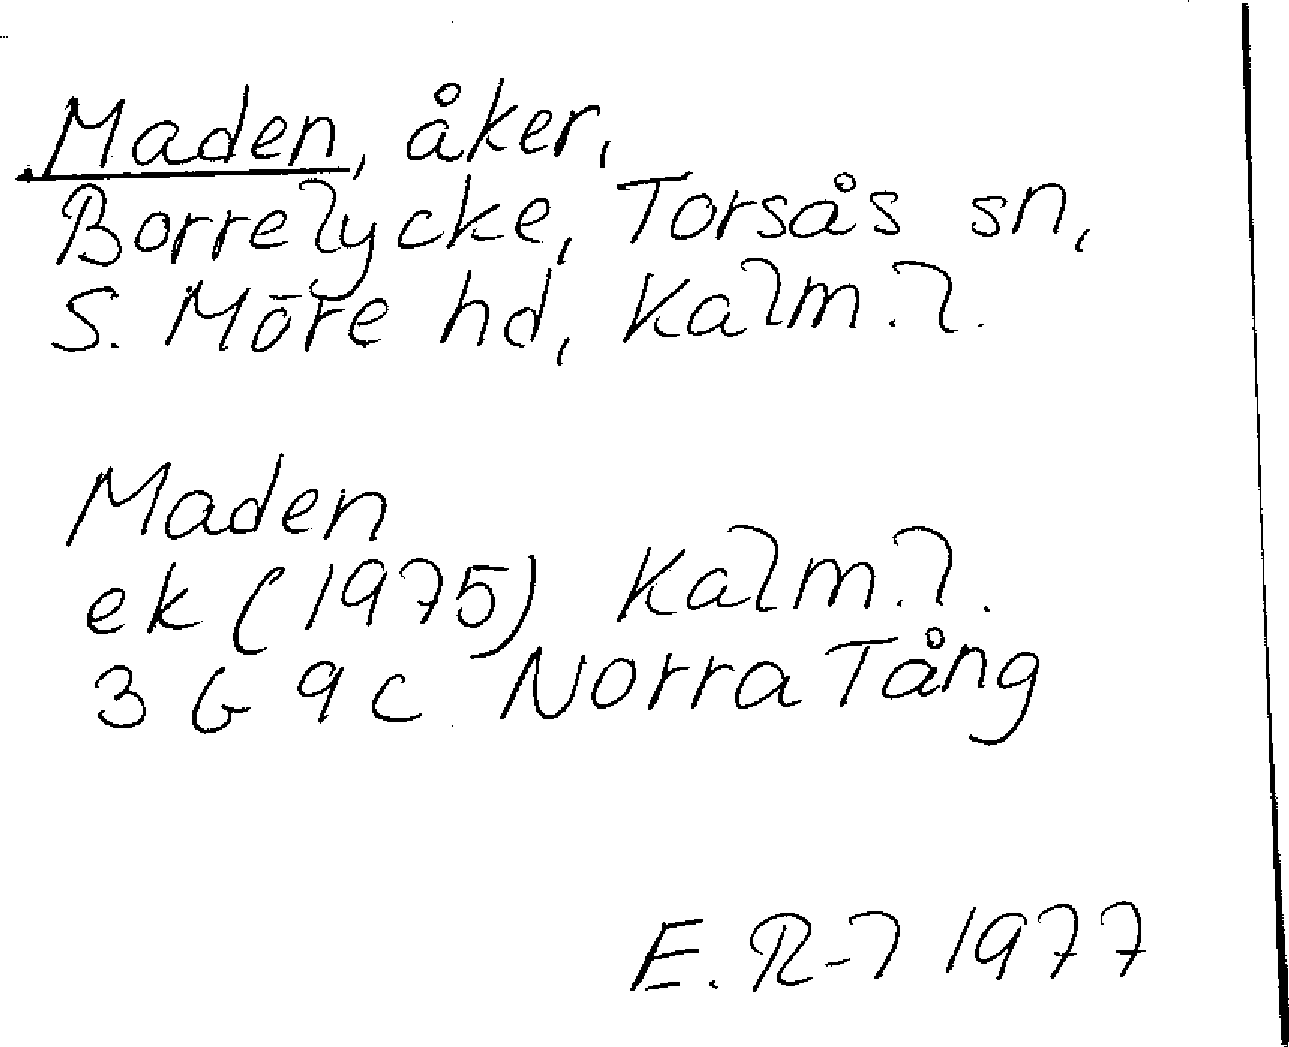 Maden, åker,
Borrelycke, Torsås sn,
S. Möre hd, Kalm. l.
Maden
ek (1975) Kalm. l.
3 G 9 c Norra Tång
E. R-l 1977